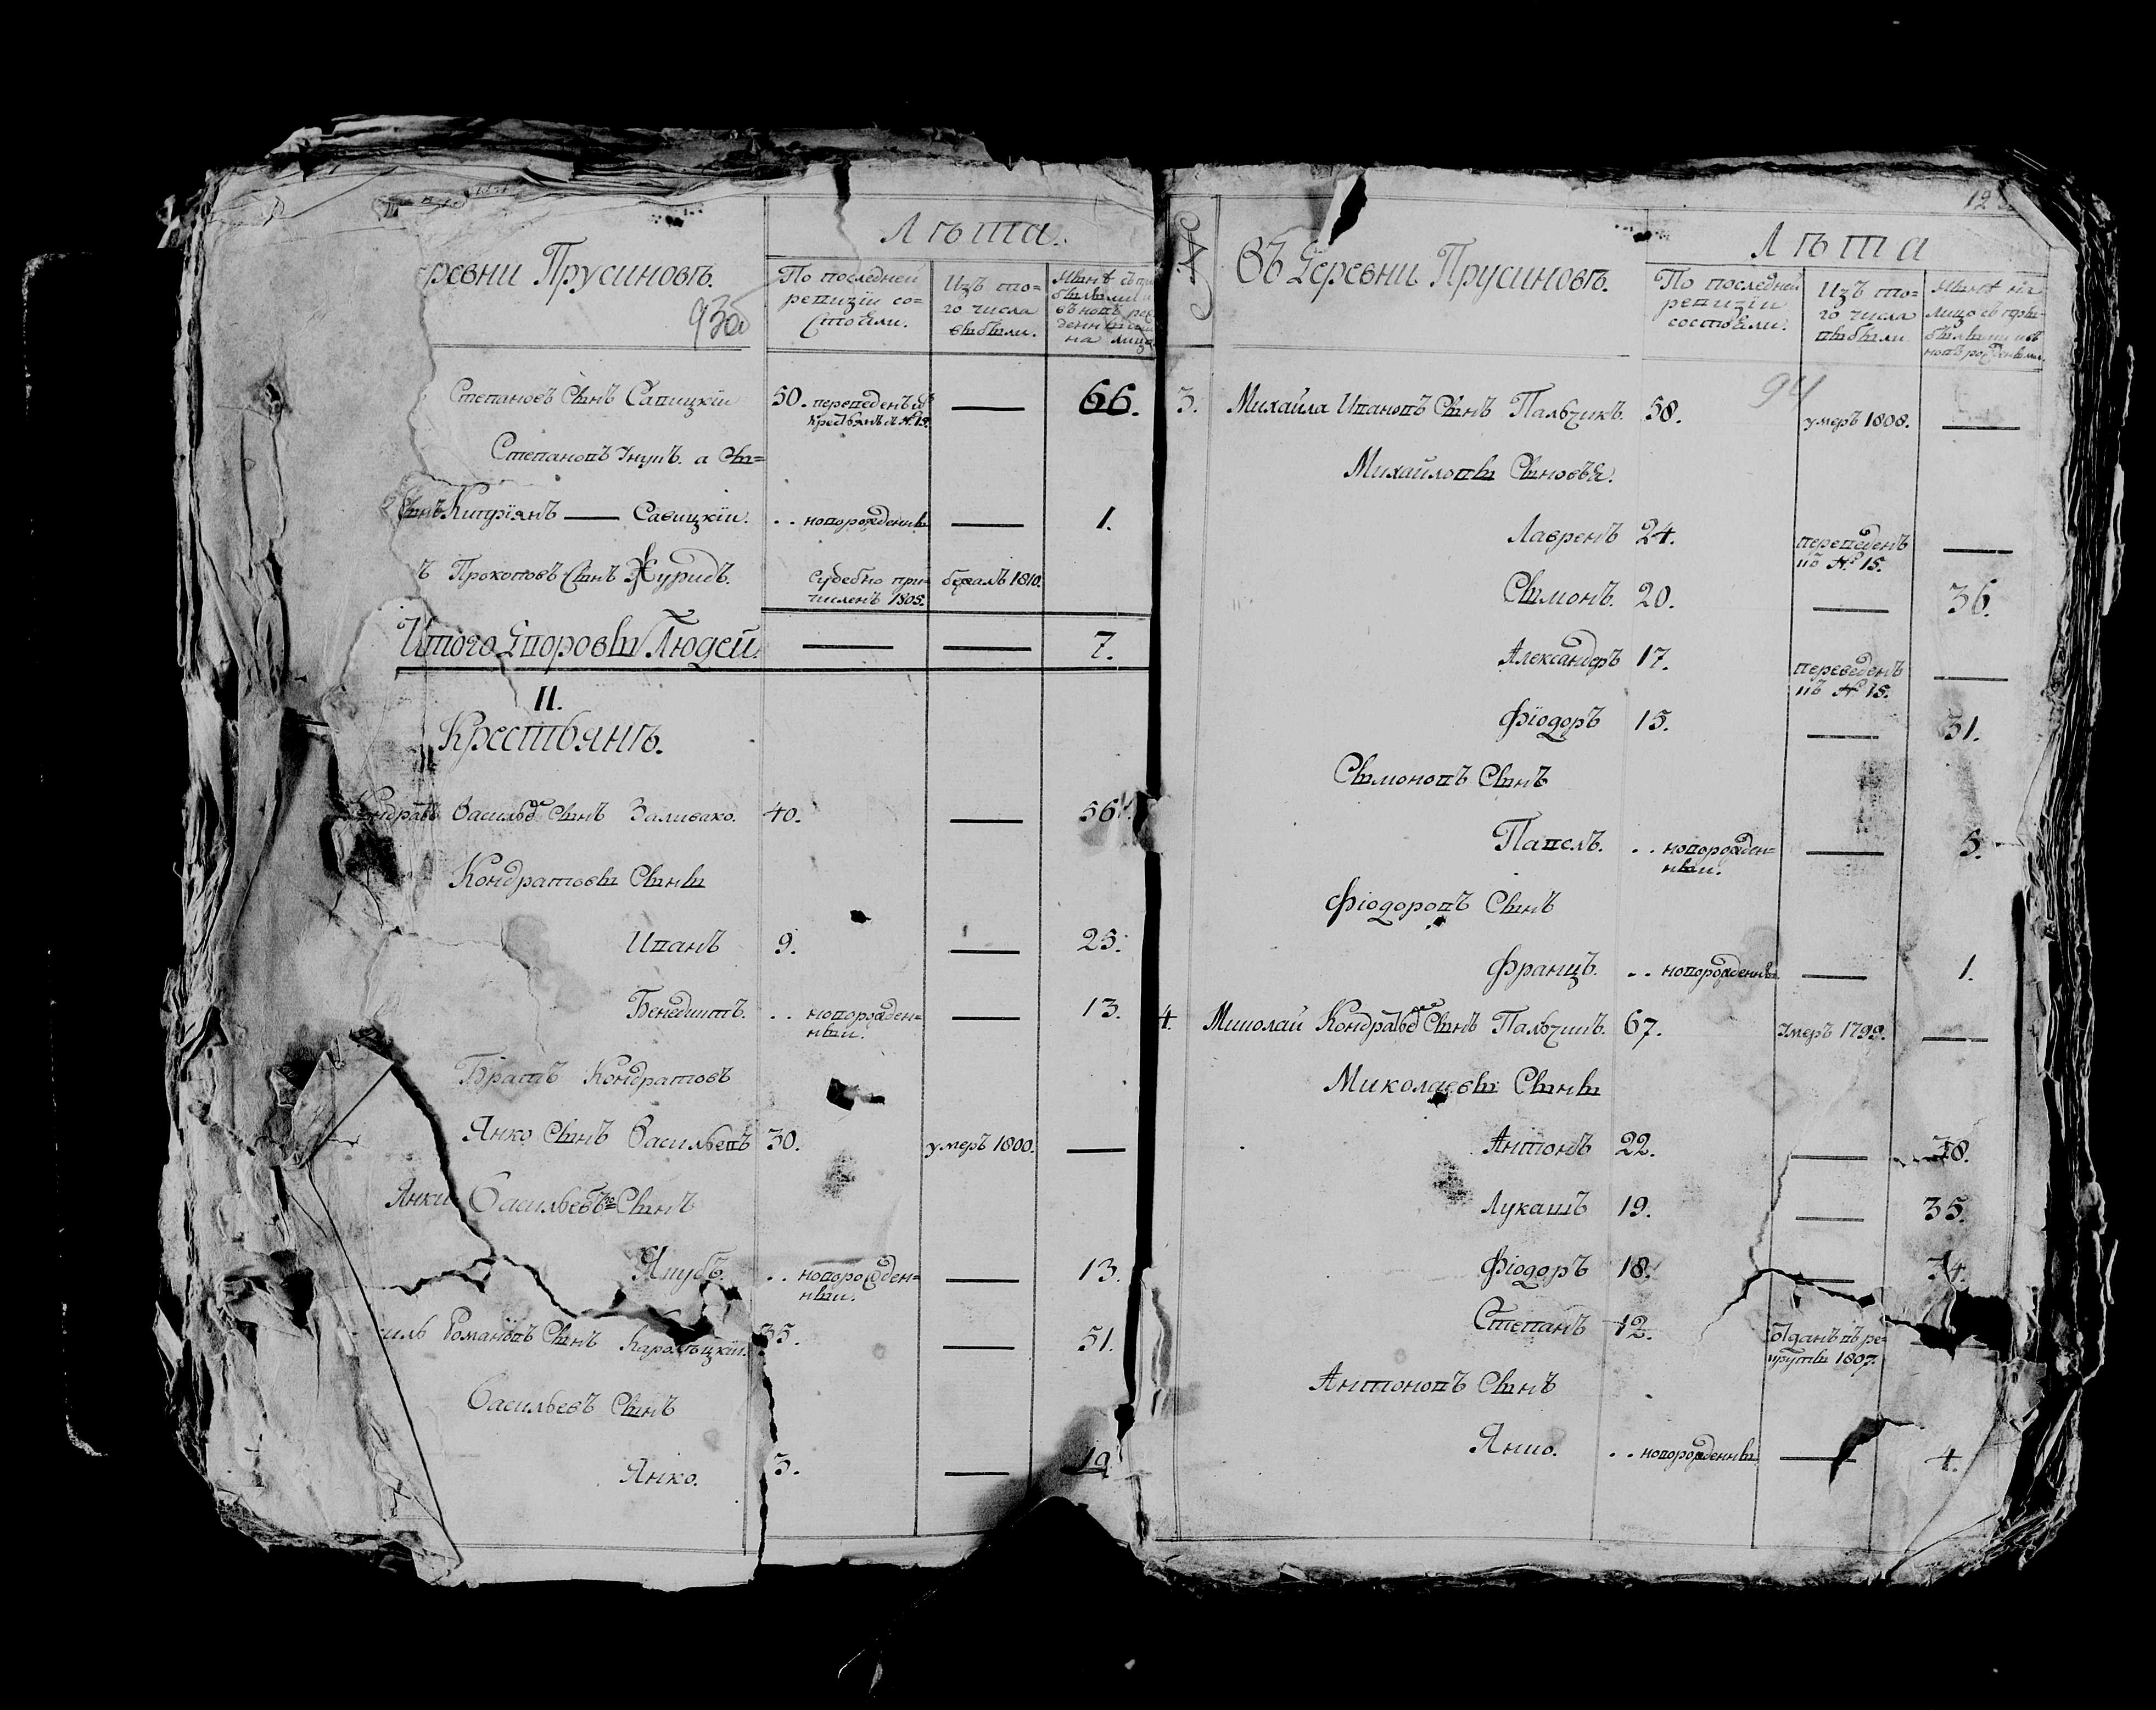 ревни Прусиновѣ.
93об
Лѣта.
По последней ревизіи со=стояли.
Изъ то=го числа выбыли.
на лицо
Степановъ Сынъ Савицкіи 50. переведенъ изъ крестьянъ №19. — 66.
Степановъ Внукъ. а Сы=
Сынъ Кипріянъ — Савицкіи. .. новорожденны — 1.
ъ Прокоповъ Сынъ Журидъ. судебно при=численъ 1805. бежалъ 1810.
Итого Дворовы Людей. — — 7.
II.
Крестьянъ.
Кондратъ Васильевъ Сынъ Заливако. 40. — 56.
Кондратовы Сыны
Иванъ 9. — 25.
Бенедиктъ. .. новорожден=ныи. — 13.
Братъ Кондратовъ
Янко Сынъ Васильевъ 30. умеръ 1800. —
Янки Васильевъ Сынъ
Якубъ. .. новорожден=ныи. — 13.
силь Романовъ Сынъ 35. — 51.
Васильевъ Сынъ
Янко. 3. — 19
12
№
Въ Деревни Прусиновѣ.
Лѣта
По последней ревизіи состояли.
Изъ то=го числа выбыли
94
3. Михайла Ивановъ Сынъ Пальчикъ. 58. умеръ 1808. —
Михайловы Сыновья.
Лавренъ 24. переведенъ въ №15. —
Сымонъ. 20. — 36.
Александеръ 17. переведенъ въ №15. —
Фіодоръ 15. — 31.
Сымоновъ Сынъ
Павелъ. .. новорожден=ныи. — 5.
Фіодоровъ Сынъ
Францъ. .. новорожденны — 1.
4. Миколай Кондратьевъ Сынъ Пальчикъ. 67. Умеръ 1799. —
Миколаевы Сыны
Антонъ 22. — 38.
Лукашъ 19. — 35.
Фіодоръ 18. — 34.
Степанъ 12. Отданъ въ ре=круты 1807. —
Антоновъ Сынъ
Янко. .. новорожденны. — 4.